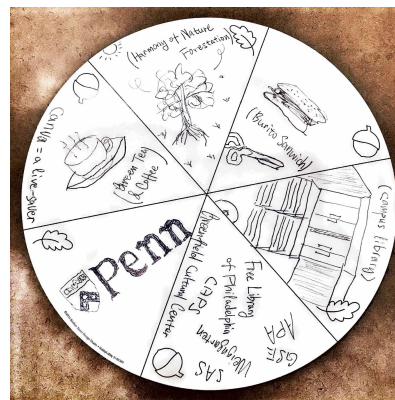 (Harmony of Nature
Forestation)
(Burito Sandwich)
(Campus library)
GSE
APA
Free Library
of Philadelphia
Weingarten
SAS
CAPS
Greenfield Cultural Center
Penn
Canva = a live-saver
(Green Tea
& Coffee)